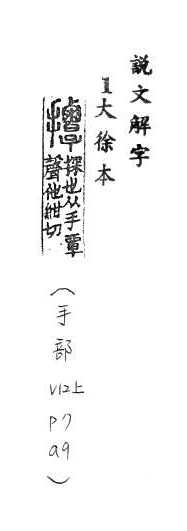 説文解字
1大徐本
撢 探也从手覃
聲他紺切
(手部 V12上 P7 a9)